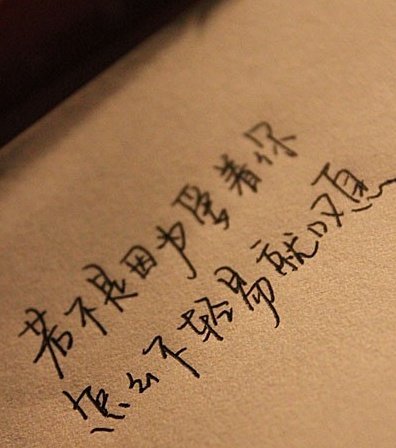 若不是因为爱着你
怎么不轻易就叹息